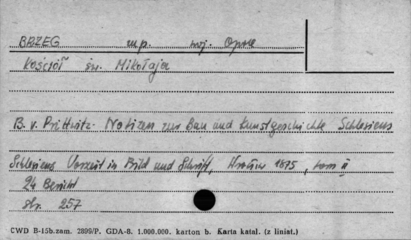 BRZEG m.p. woj. Opole
Kościół św. Mikołaja
B. v. Prittwitz. Notizen zur Bau und Kunstgeschichte Schlesiens
Schlesiens Vorzeit in Bild und Schrift, 1875, tom II
24 Bericht
str. 257
CWD B-15b.zam. 2899/P. GDA-8. 1.000.000. karton b. Karta katal. (z liniat.)